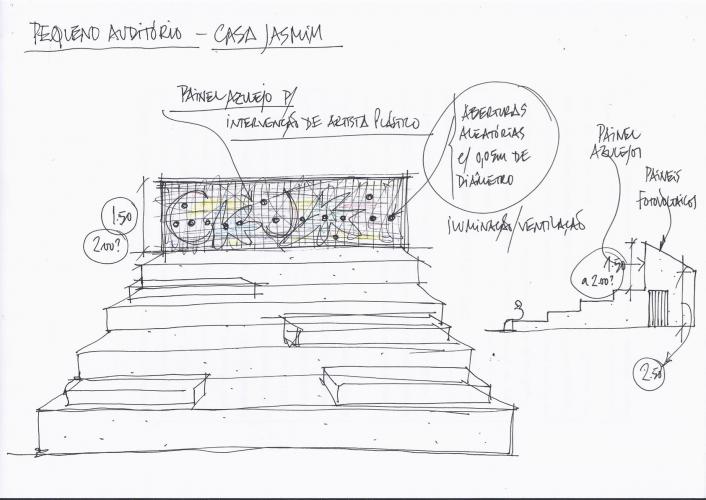 PEQUENO AUDITÓRIO – CASA JASMIM
PAINEL AZULEJO P/
INTERVENÇÃO DE ARTISTA PLÁSTICO
ABERTURAS
ALEATÓRIAS
c/ 0,05m DE
DIÂMETRO
ILUMINAÇÃO/VENTILAÇÃO
1.50
2.00?
PAINEL
AZULEJOS
PAINEIS
FOTOVOLTAICOS
1.50
a 2.00?
2.50